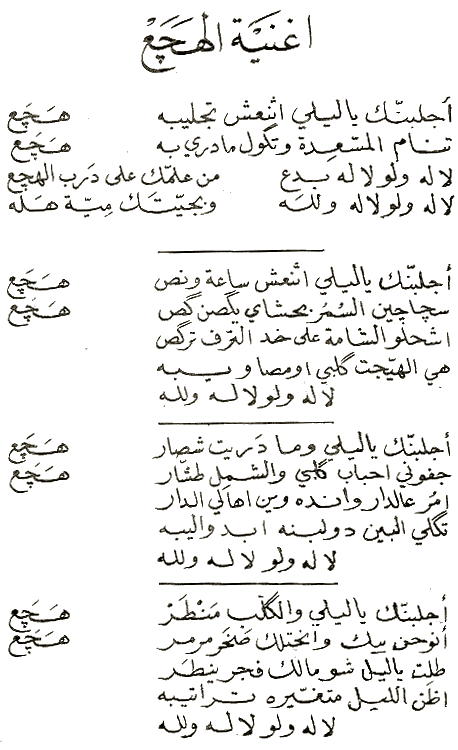 اغنيَة الهَجَع
أجلبنّك ياليلي اثنعش تجليبه هَجَع
تنام المسْعِدة وتگول مادري به هَجَع
لاله ولو لاله بدع من علمّك على دَرب الهجع
لاله ولو لاله وللَه وبجيّتك مِيّة هَله
أجلبنّك ياليلي اثنعش ساعة ونص هَجَع
سچاچين السُمُر بحشاي يگصن گص هَجَع
اشحلو الشامة على خد الترف ترگص
هي الهيّجت گلبي او مصاويبه
لاله ولو لاله ولله
أجلبنّك ياليلي وما دَريت شصار هَجَع
جفوني احباب گلبي والشمل طشّار هَجَع
امُر عالدار وانده وين اهالي الدار
تگلي البين دولبنه ابد واليبه
لاله ولو لاله ولله
أجلبنّك ياليلي والگلَب مَنْطَرْ هَجَع
أنوحن بيك وانحتلك صَخَر مرمر هَجَع
طلت ياليل شو مالك فجر ينطر
اظن الليل متغيّره تراتيبه
لاله ولو لاله ولله